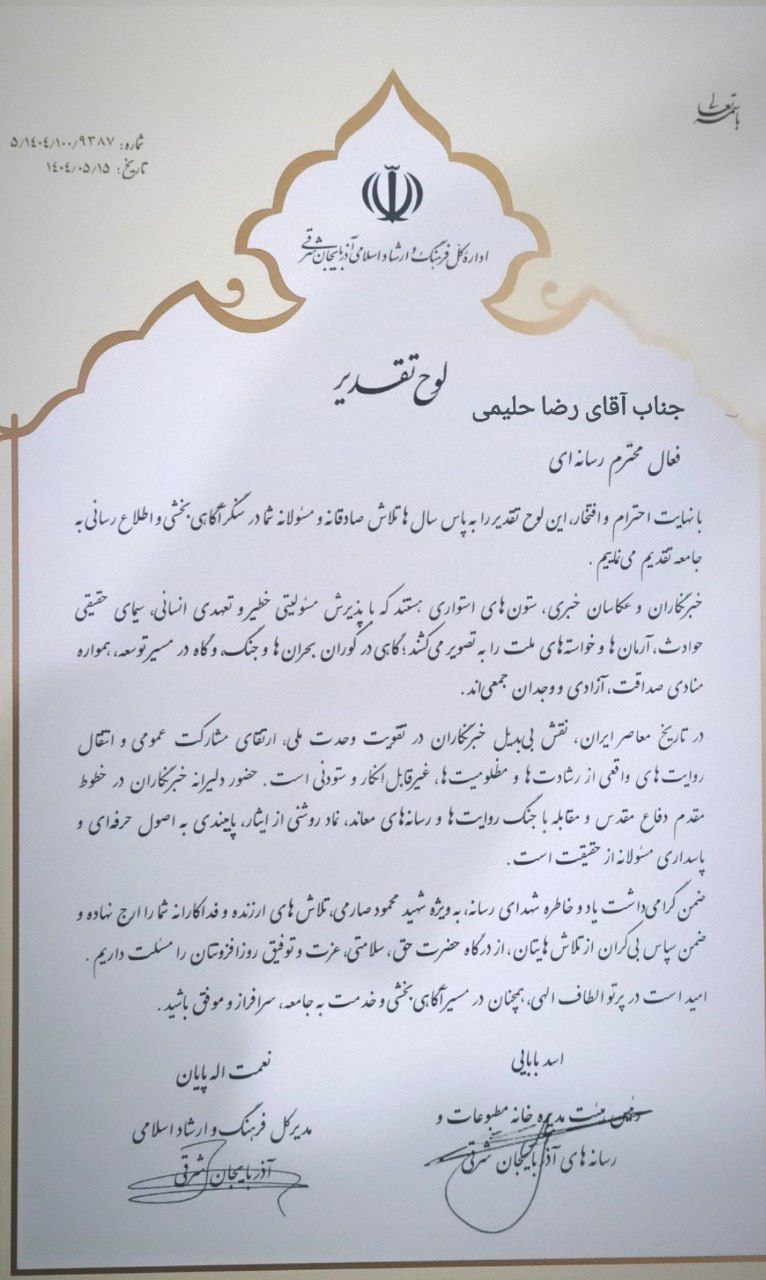 باسمه تعالی
شماره: ۵/۱۴۰۴/۱۰۰/۹۳۸۷
تاریخ: ۱۴۰۴/۰۵/۱۵
اداره کل فرهنگ و ارشاد اسلامی آذربایجان شرقی
لوح تقدیر
جناب آقای رضا حلیمی
فعال محترم رسانه ای
با نهایت احترام و افتخار، این لوح تقدیر را به پاس سال ها تلاش صادقانه و مسئولانه شما در سنگر آگاهی بخشی و اطلاع رسانی به
جامعه تقدیم می‌نماییم .
خبرنگاران و عکاسان خبری، ستون های استواری هستند که با پذیرش مسئولیتی خطیر و تعهدی انسانی، سیمای حقیقی
حوادث، آرمان ها و خواسته های ملت را به تصویر می‌کشند؛ گاهی در کوران بحران ها و جنگ، و گاه در مسیر توسعه، همواره
منادی صداقت، آزادی و وجدان جمعی‌اند.
در تاریخ معاصر ایران، نقش بی‌بدیل خبرنگاران در تقویت وحدت ملی، ارتقای مشارکت عمومی و انتقال
روایت های واقعی از رشادت ها و مظلومیت ها، غیرقابل انکار و ستودنی است. حضور دلیرانه خبرنگاران در خطوط
مقدم دفاع مقدس و مقابله با جنگ روایت ها و رسانه های معاند، نماد روشنی از ایثار، پایبندی به اصول حرفه‌ای و
پاسداری مسئولانه از حقیقت است.
ضمن گرامی‌داشت یاد و خاطره شهدای رسانه، به ویژه شهید محمود صارمی، تلاش های ارزنده و فداکارانه شما را ارج نهاده و
ضمن سپاس بی‌کران از تلاش هایتان، از درگاه حضرت حق، سلامتی، عزت و توفیق روزافزونتان را مسئلت داریم .
امید است در پرتو الطاف الهی، همچنان در مسیر آگاهی بخشی و خدمت به جامعه، سرافراز و موفق باشید .
اسد بابایی
رئیس هیئت مدیره خانه مطبوعات و
رسانه های آذربایجان شرقی
نعمت اله پایان
مدیرکل فرهنگ و ارشاد اسلامی
آذربایجان شرقی